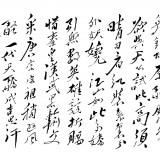 欲與天公試比高須
晴日看紅裝素裹
外妖嬈江山如此多嬌
引無數英雄競折腰
惜秦皇漢武略輸文
采唐宗宋祖稍遜風
騷一代天驕成吉思汗